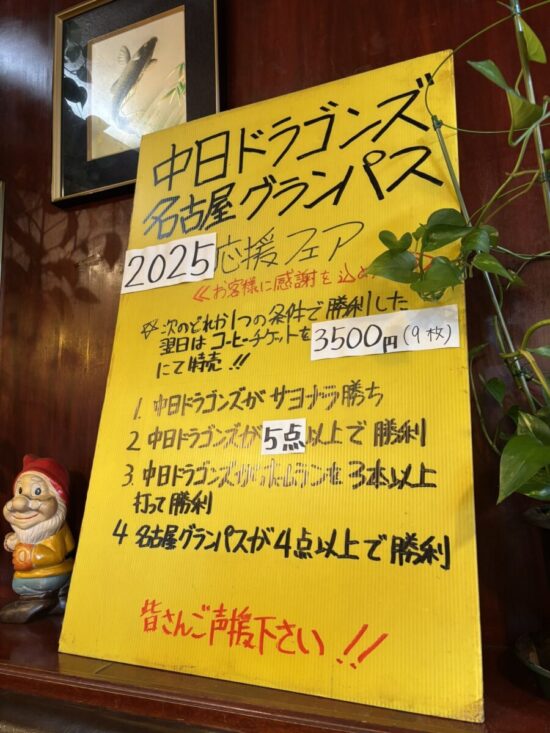 中日ドラゴンズ
名古屋グランパス
2025応援フェア
≪お客様に感謝を込め
☆次のどれか1つの条件で勝利した
翌日はコーヒーチケットを3500円(9枚)
にて特売!!
1. 中日ドラゴンズがサヨナラ勝ち
2. 中日ドラゴンズが5点以上で勝利
3. 中日ドラゴンズがホームランを3本以上
打って勝利
4 名古屋グランパスが4点以上で勝利
皆さんご声援下さい!!